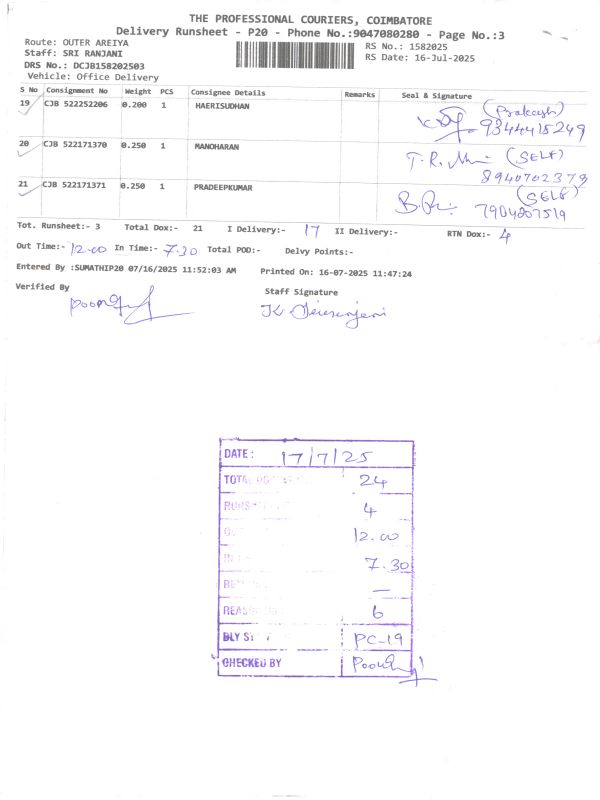 THE PROFESSIONAL COURIERS, COIMBATORE
Delivery Runsheet - P20 - Phone No.:9047080280 - Page No.:3
Route: OUTER AREIYA
RS No.: 1582025
Staff: SRI RANJANI
RS Date: 16-Jul-2025
DRS No.: DCJB158202503
Vehicle: Office Delivery
S No Consignment No Weight PCS Consignee Details Remarks Seal & Signature
19 CJB 522252206 0.200 1 HAERISUDHAN (Prakash) 9344418249
20 CJB 522171370 0.250 1 MANOHARAN T.R. (SELF) 8940702379
21 CJB 522171371 0.250 1 PRADEEPKUMAR (SELF) 7904807519
Tot. Runsheet:- 3 Total Dox:- 21 I Delivery:- 17 II Delivery:- RTN Dox:- 4
Out Time:- 12.00 In Time:- 7.30 Total POD:- Delvy Points:-
Entered By :SUMATHIP20 07/16/2025 11:52:03 AM Printed On: 16-07-2025 11:47:24
Verified By
Staff Signature
DATE: 17/7/25
TOTAL 24
4
12.00
7.30
—
6
DLY PC-19
CHECKED BY